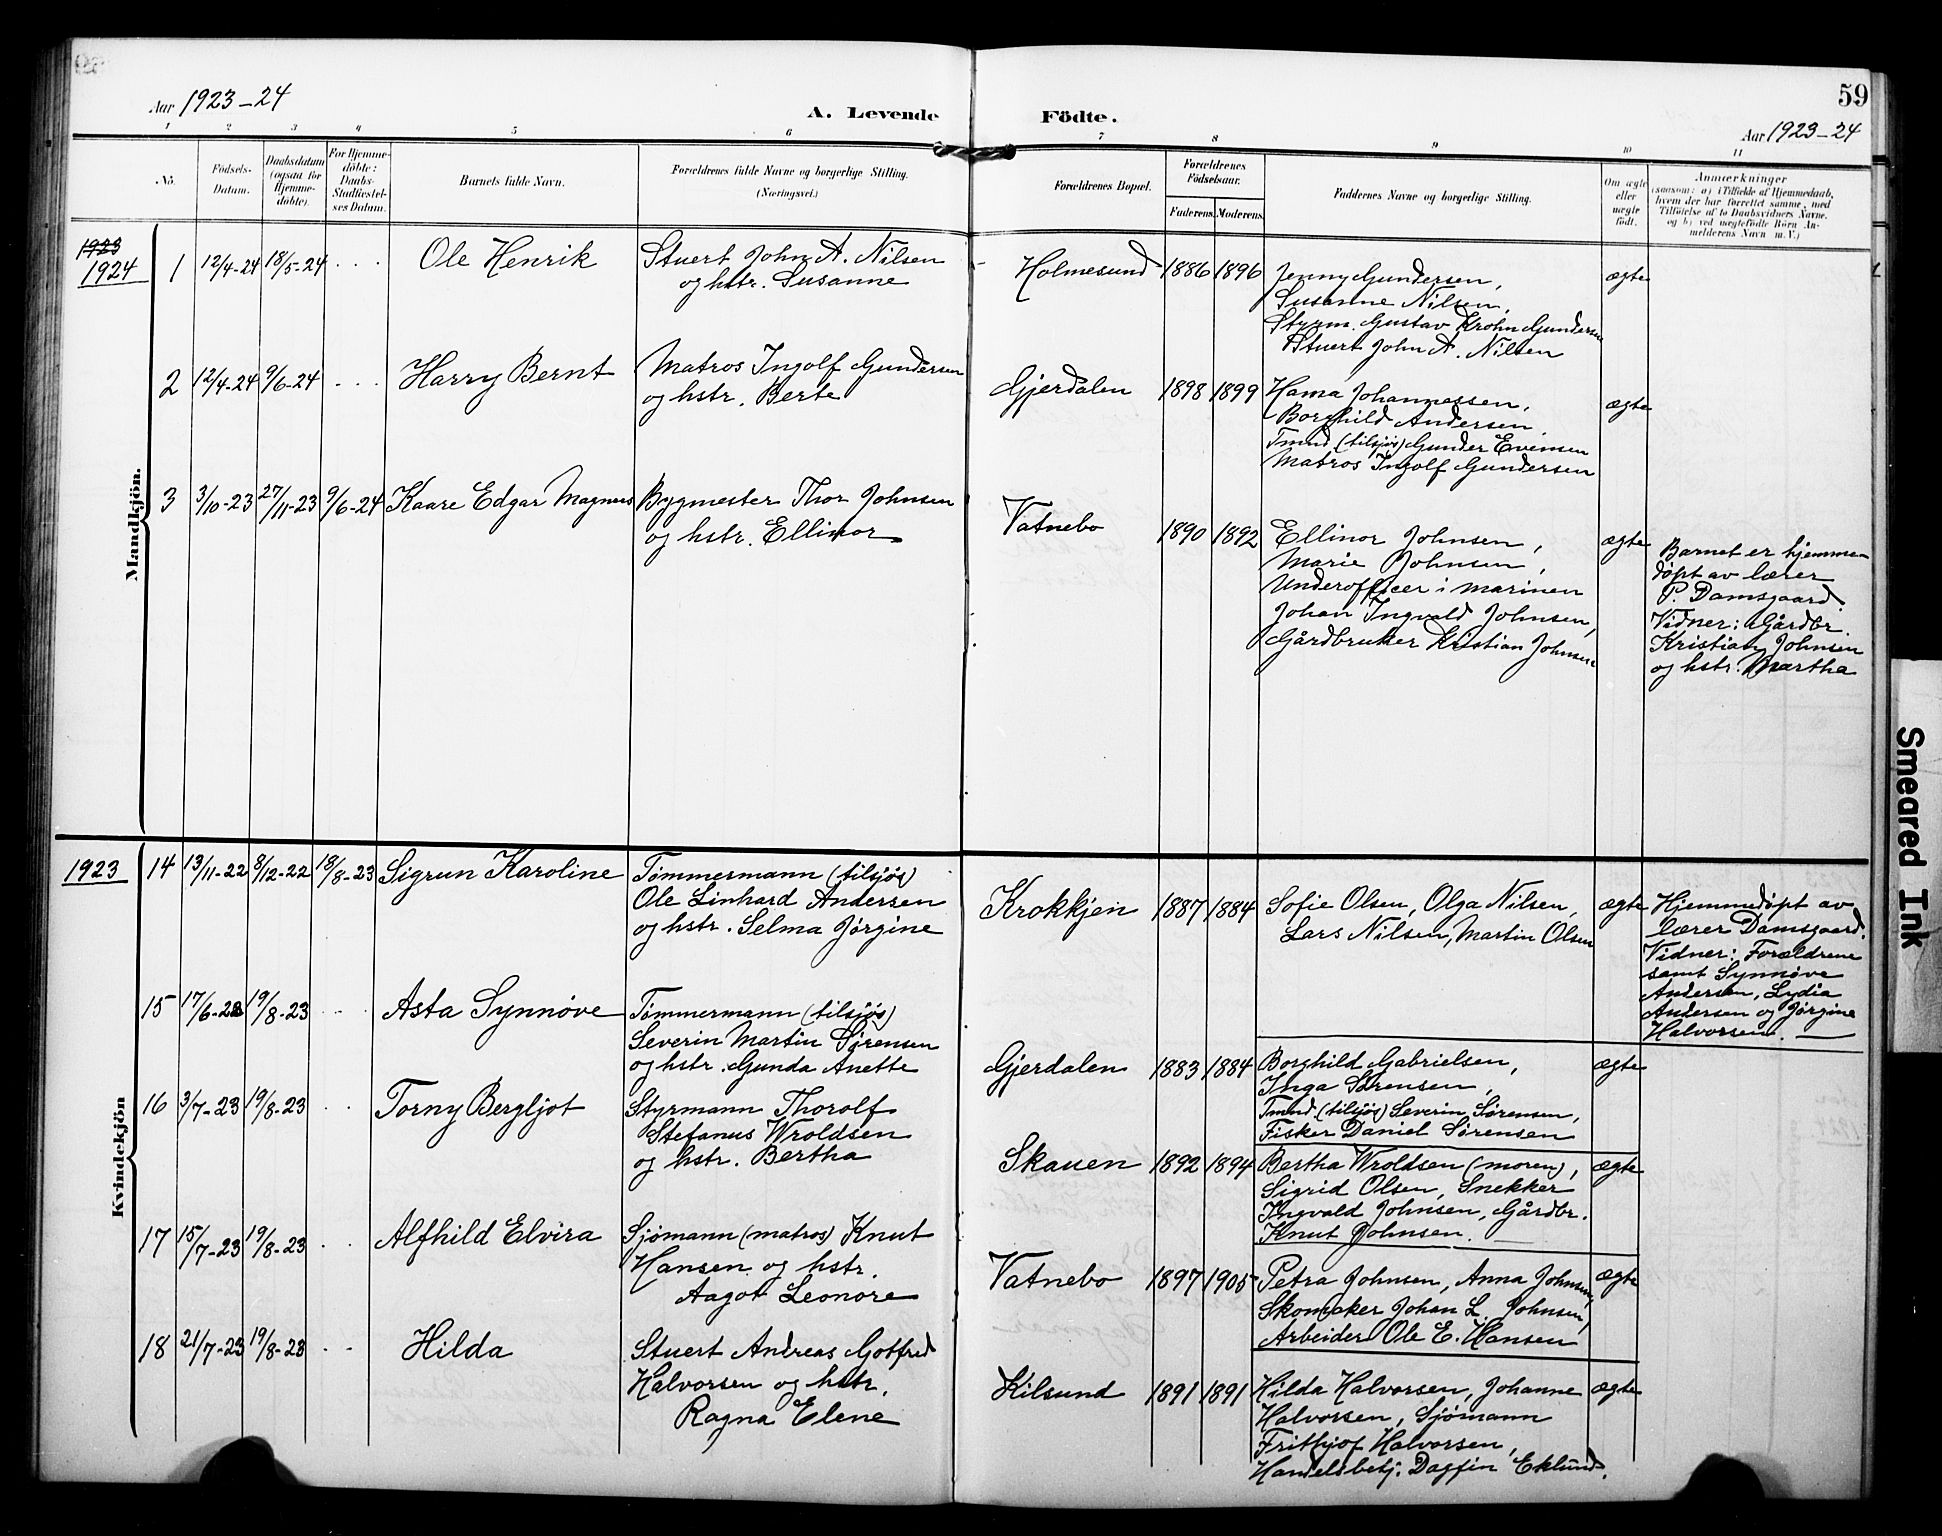 59
Aar 1923-24
A. Levende Födte.
Aar 1923-24
1 2 3 4 5 6 7 8 9 10 11
No.
Födsels-Datum.
Daabsdatum (ogsaa for Hjemme-döbte).
For Hjemme-döbte: Daabs-Stadfæstel-ses Datum.
Barnets fulde Navn.
Forældrenes fulde Navne og borgerlige Stilling.
(Næringsvei.)
Forældrenes Bopæl.
Forældrenes Födselsaar.
Faderens. Moderens.
Faddernes Navne og borgerlige Stilling.
Om ægte eller uægte födt.
Anmærkninger
(saasom: a) i Tilfælde af Hjemmedaab,
hvem der har forrettet samme, med
Tilföielse af to Daabsvidners Navne,
og b) ved uægtefödte Börn An-
melderens Navn m. V.)
Mandkjön.
1923
1924
1 12/4-24 18/5-24 Ole Henrik
Stuert John A. Nilsen
og hstr. Susanne
Holmesund 1886 1896
Jenny Gundersen,
Susanne Nilsen,
Styrm. Gustav Krohn Gundersen
Stuert John A. Nilsen
ægte
2 12/4-24 9/6-24 Harry Bernt
Matros Ingolf Gundersen
og hstr. Berte
Gjerdalen 1898 1899
Hama Johannessen,
Borghild Andersen,
Tmnd (tilsjøs) Gunder Evensen
Matros Ingolf Gundersen
ægte
3 3/10-23 27/11-23 9/6-24 Kaare Edgar Magnus
Bygmester Thor Johnsen
og hstr. Ellinor
Vatnebo 1890 1892
Ellinor Johnsen,
Marie Johnsen,
Underofficer i marinen
Johan Ingvald Johnsen,
Gårdbruker Kristian Johnsen
ægte
Barnet er hjemme-
døpt av lærer
P. Damsgaard.
Vidner: Gårdbr.
Kristian Johnsen
og hstr. Martha
Kvindekjön
1923
14 13/11-22 8/12-22 18/8-23 Sigrun Karoline
Tømmermann (tilsjøs)
Ole Linhard Andersen
og hstr. Selma Jørgine
Krokkjen 1887 1884
Sofie Olsen, Olga Nilsen,
Lars Nilsen, Martin Olsen
ægte
Hjemmedøpt av
lærer Damsgaard.
Vidner: Forældrene
samt Synnøve
Andersen, Lydia
Andersen og Jørgine
Halvorsen.
15 17/6-23 19/8-23 Asta Synnøve
Tømmermann (tilsjøs)
Severin Martin Sørensen
og hstr. Gunda Anette
Gjerdalen 1883 1884
Borghild Gabrielsen,
Inga Sørensen,
Tmnd. (tilsjøs) Severin Sørensen,
Fisker Daniel Sørensen
ægte
16 3/7-23 19/8-23 Torny Bergljot
Styrmann Thorolf
Stefanus Wroldsen
og hstr. Bertha
Skauen 1892 1894
Bertha Wroldsen (moren),
Sigrid Olsen, Snekker
Ingvald Johnsen, Gårdbr.
Knut Johnsen.
ægte
17 15/7-23 19/8-23 Alfhild Elvira
Sjømann (matros) Knut
Hansen og hstr.
Aagot Leonore
Vatnebo 1897 1905
Petra Johnsen, Anna Johnsen,
Skomaker Johan L. Johnsen,
Arbeider Ole E. Hansen
ægte
18 21/7-23 19/8-23 Hilda
Stuert Andreas Gotfred
Halvorsen og hstr.
Ragna Elene
Kilsund 1891 1891
Hilda Halvorsen, Johanne
Halvorsen, Sjømann
Frithjof Halvorsen,
Handelsbetj. Dagfin Eklund.
ægte
Smeared Ink